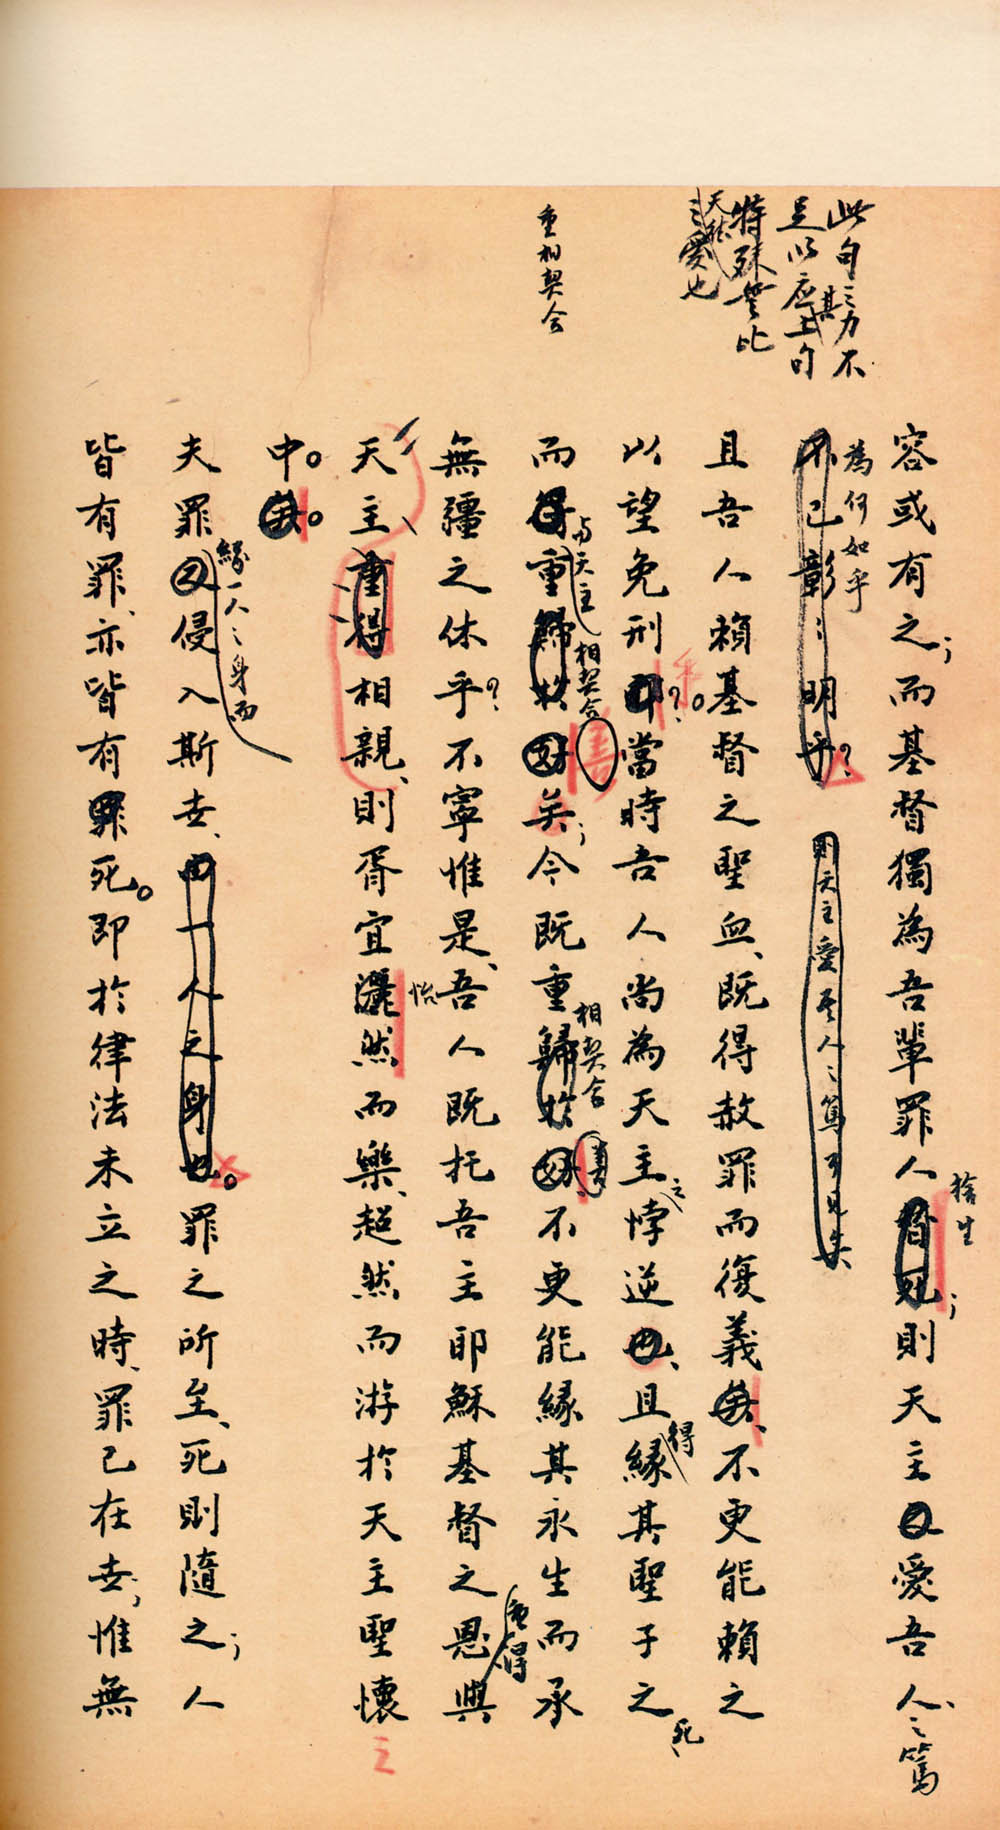 此句之力不
足以應其上句
特殊無比
天然
之愛也
重相契合
容或有之；而基督獨為吾輩罪人替死；則天主之愛吾人、之篤
捨生
為何如乎
不已彰彰明乎？
則天主愛吾人之篤可見矣
且吾人賴基督之聖血、既得赦罪而復義矣、不更能賴之
以望免刑耶？。當時吾人尚為天主之悖逆也、且緣其聖子之死
乎
得
而得重歸於好矣；今既重歸於好、不更能緣其永生而承
與天主相契合
舊
相契合
無疆之休乎？不寧惟是、吾人既托吾主耶穌基督之恩與
重得
天主重得相親、則胥宜灑然而樂、超然而游於天主聖懷
怡
之
中。矣。
夫罪之侵入斯世、由一人之身也。罪之所至、死則隨之；人
緣一人之身而
皆有罪、亦皆有死。即於律法未立之時、罪已在世；惟無